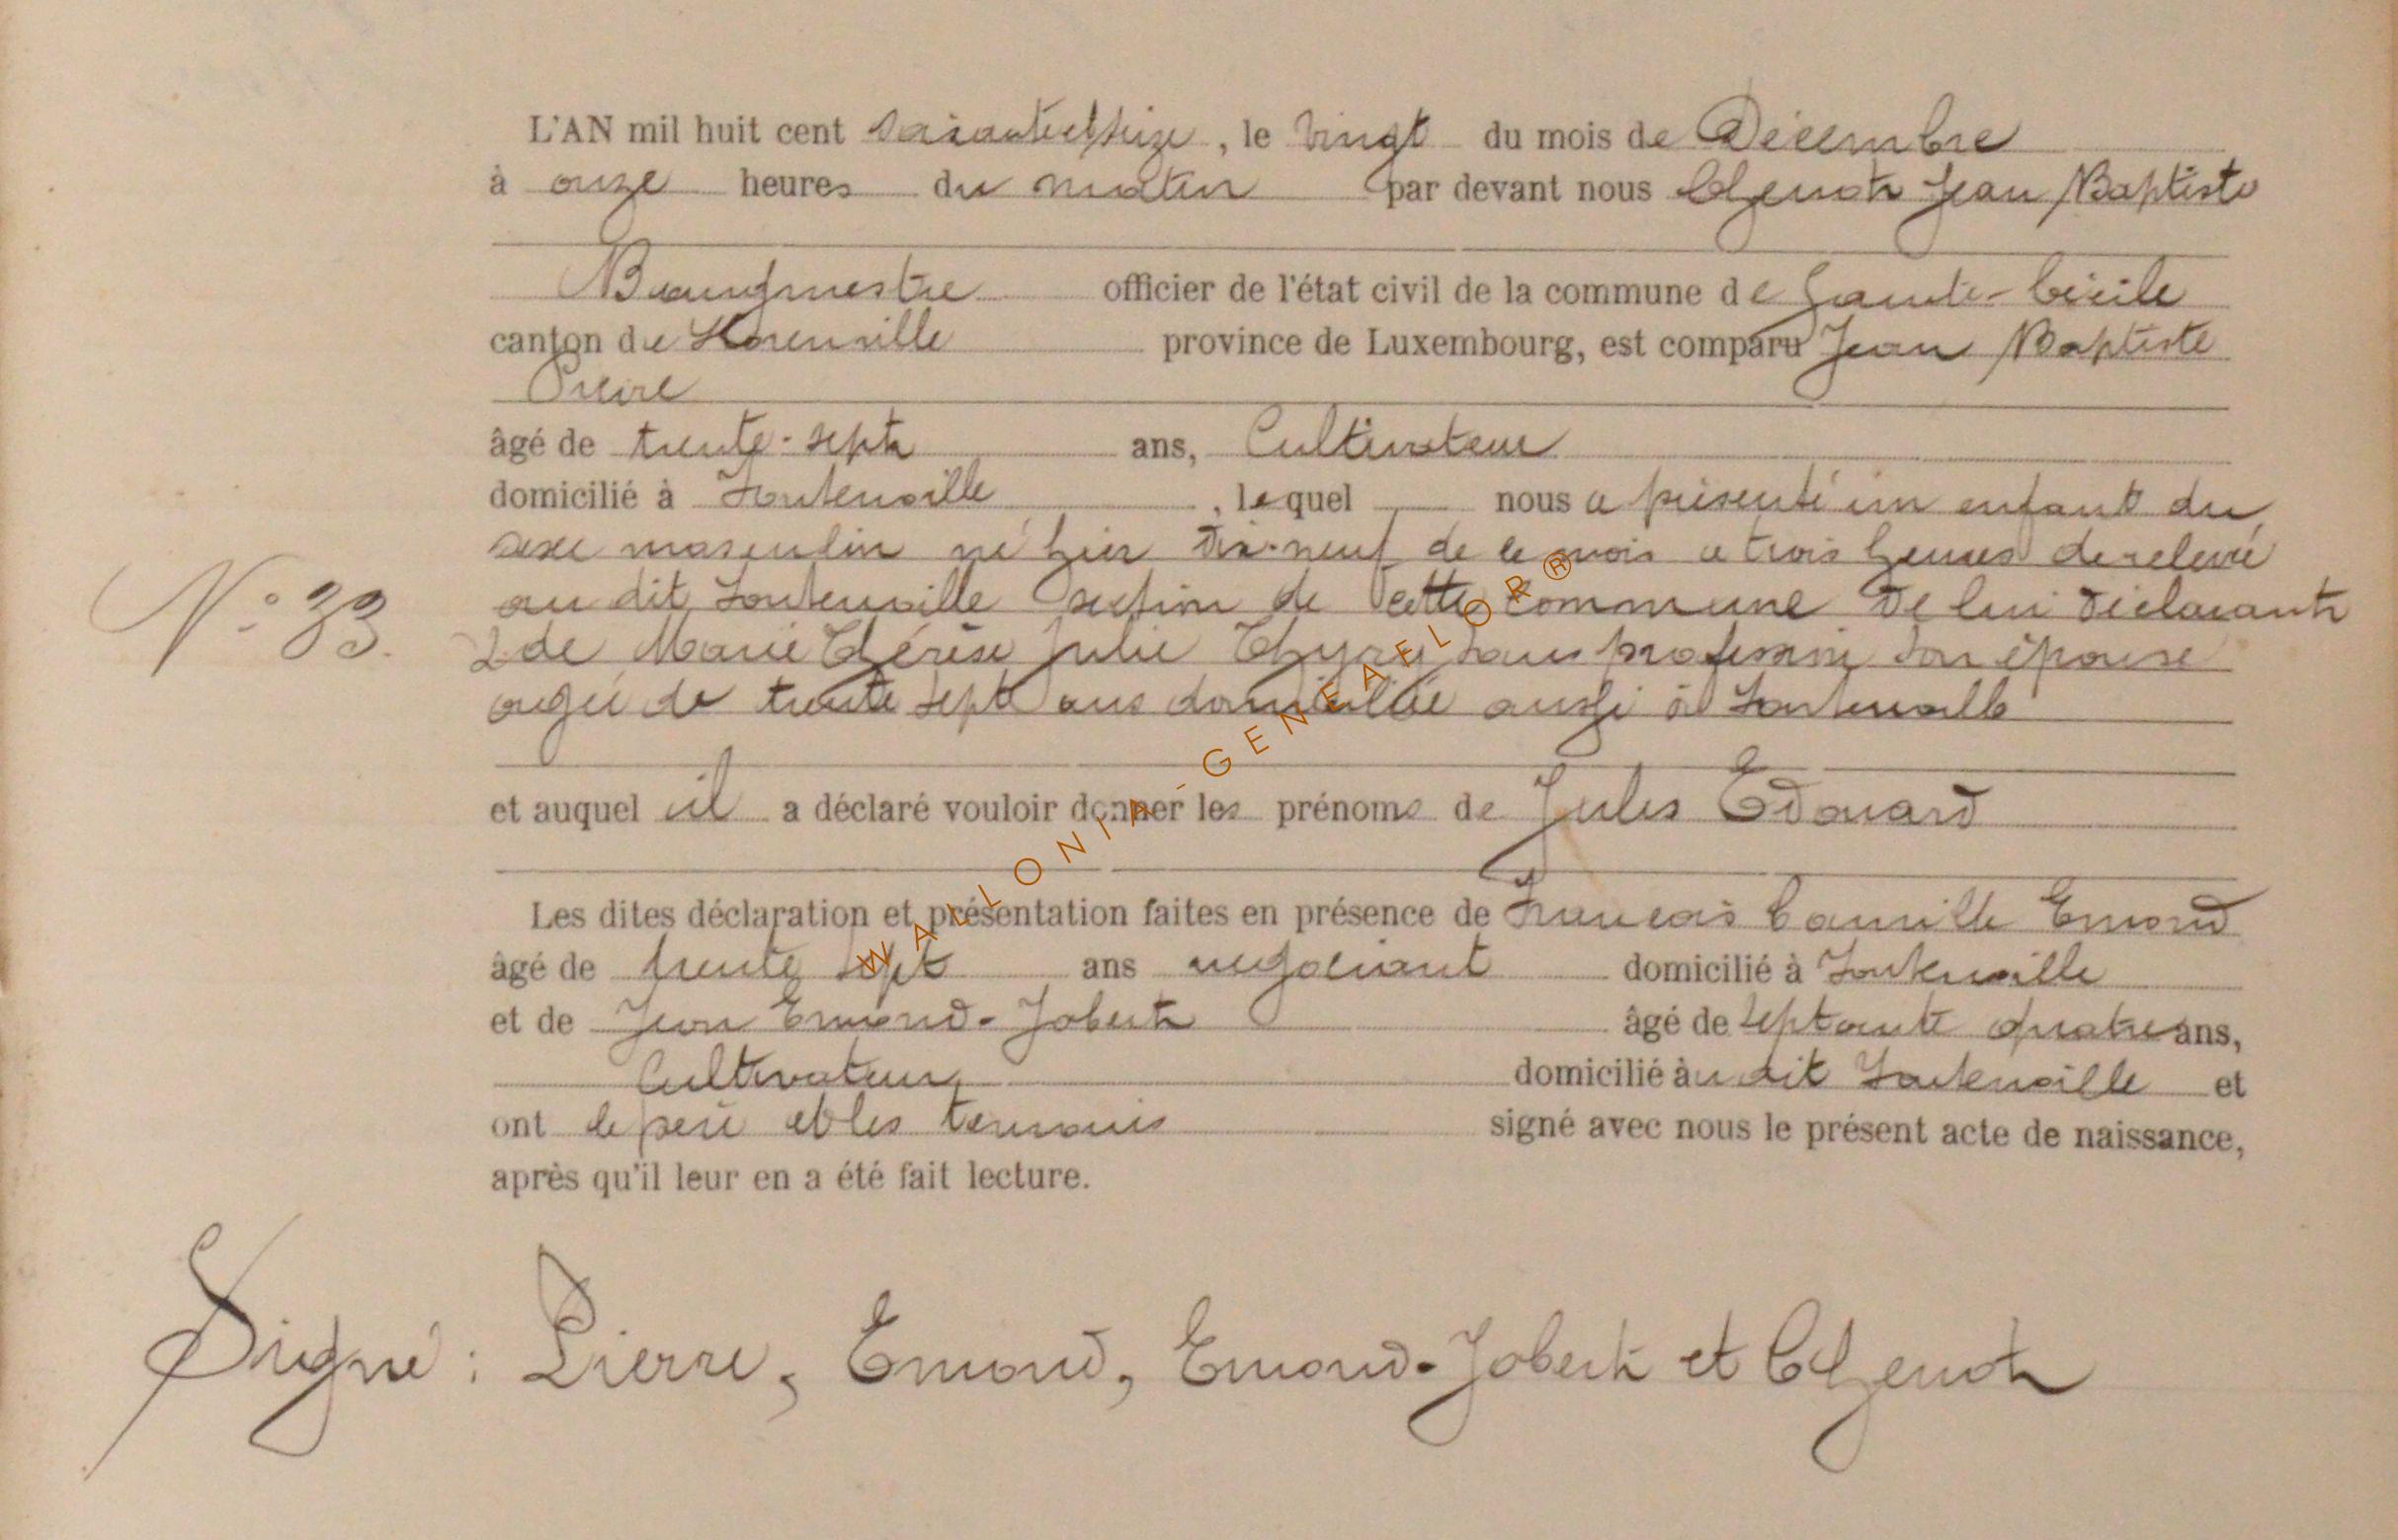 L'AN mil huit cent soixante et seize, le vingt du mois de Décembre
à onze heures du matin par devant nous Chenot Jean Baptiste
Bourgmestre officier de l'état civil de la commune de Sainte-Cécile
canton de Florenville province de Luxembourg, est comparu Jean Baptiste
Pierre
âgé de trente-sept ans, Cultivateur
domicilié à Fontenoille, lequel nous a présenté un enfant du
sexe masculin né hier dix-neuf de ce mois a trois heures de relevé
au dit Fontenoille section de cette commune de lui déclarant
N° 33. & de Marie Thérèse Julie Thyry sans profession son épouse
agée de trente sept ans domiciliée aussi à Fontenoille
et auquel il a déclaré vouloir donner les prénoms de Jules Edouard
Les dites déclaration et présentation faites en présence de Francois Camille Emond
âgé de trente sept ans negociant domicilié à Fontenoille
et de Jean Emond-Jobert âgé de septante quatre ans,
Cultivateur domicilié au dit Fontenoille et
ont le père et les temoins signé avec nous le présent acte de naissance,
après qu'il leur en a été fait lecture.
Signé : Pierre, Emond, Emond-Jobert et Chenot
WALLONIA-GENEAELOR®